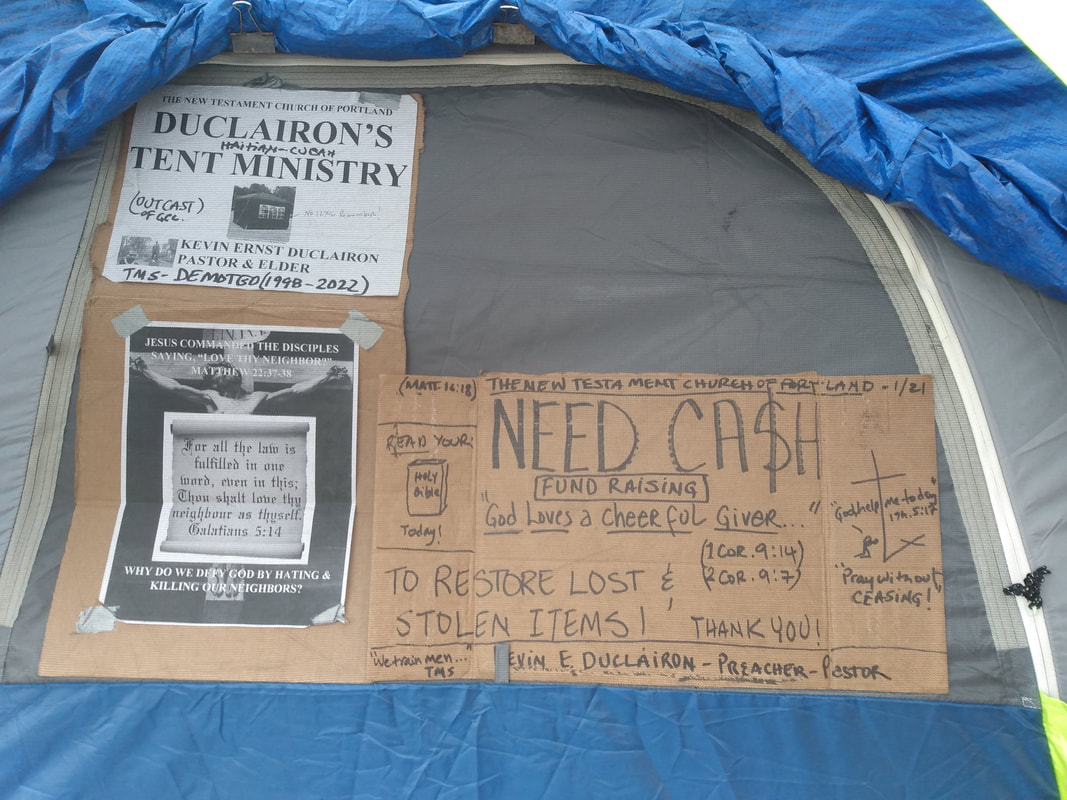 THE NEW TESTAMENT CHURCH OF PORTLAND
DUCLAIRON'S
HAITIAN-CUBAN
TENT MINISTRY
(OUTCAST)
OF GCC.
KEVIN ERNST DUCLAIRON
PASTOR & ELDER
TMS-DEMOTED (1998-2022)
JESUS COMMANDED THE DISCIPLES
SAYING, "LOVE THY NEIGHBOR?"
MATTHEW 22:37-38
For all the law is
fulfilled in one
word, even in this;
Thou shalt love thy
neighbour as thyself.
Galatians 5:14
WHY DO WE DEFY GOD BY HATING &
KILLING OUR NEIGHBORS?
(MATT 16:18)
READ YOUR
HOLY
Bible
Today!
THE NEW TESTAMENT CHURCH OF PORTLAND - 1/21
NEED CA$H
FUND RAISING
"God Loves a Cheerful Giver..."
(1 COR. 9:14)
(2 COR. 9:7)
TO RESTORE LOST &
STOLEN ITEMS!
THANK YOU!
"We train men..."
TMS
EVIN E. DUCLAIRON - PREACHER - PASTOR
"God help me today"
1Th. 5:17
"Pray without
CEASING!"